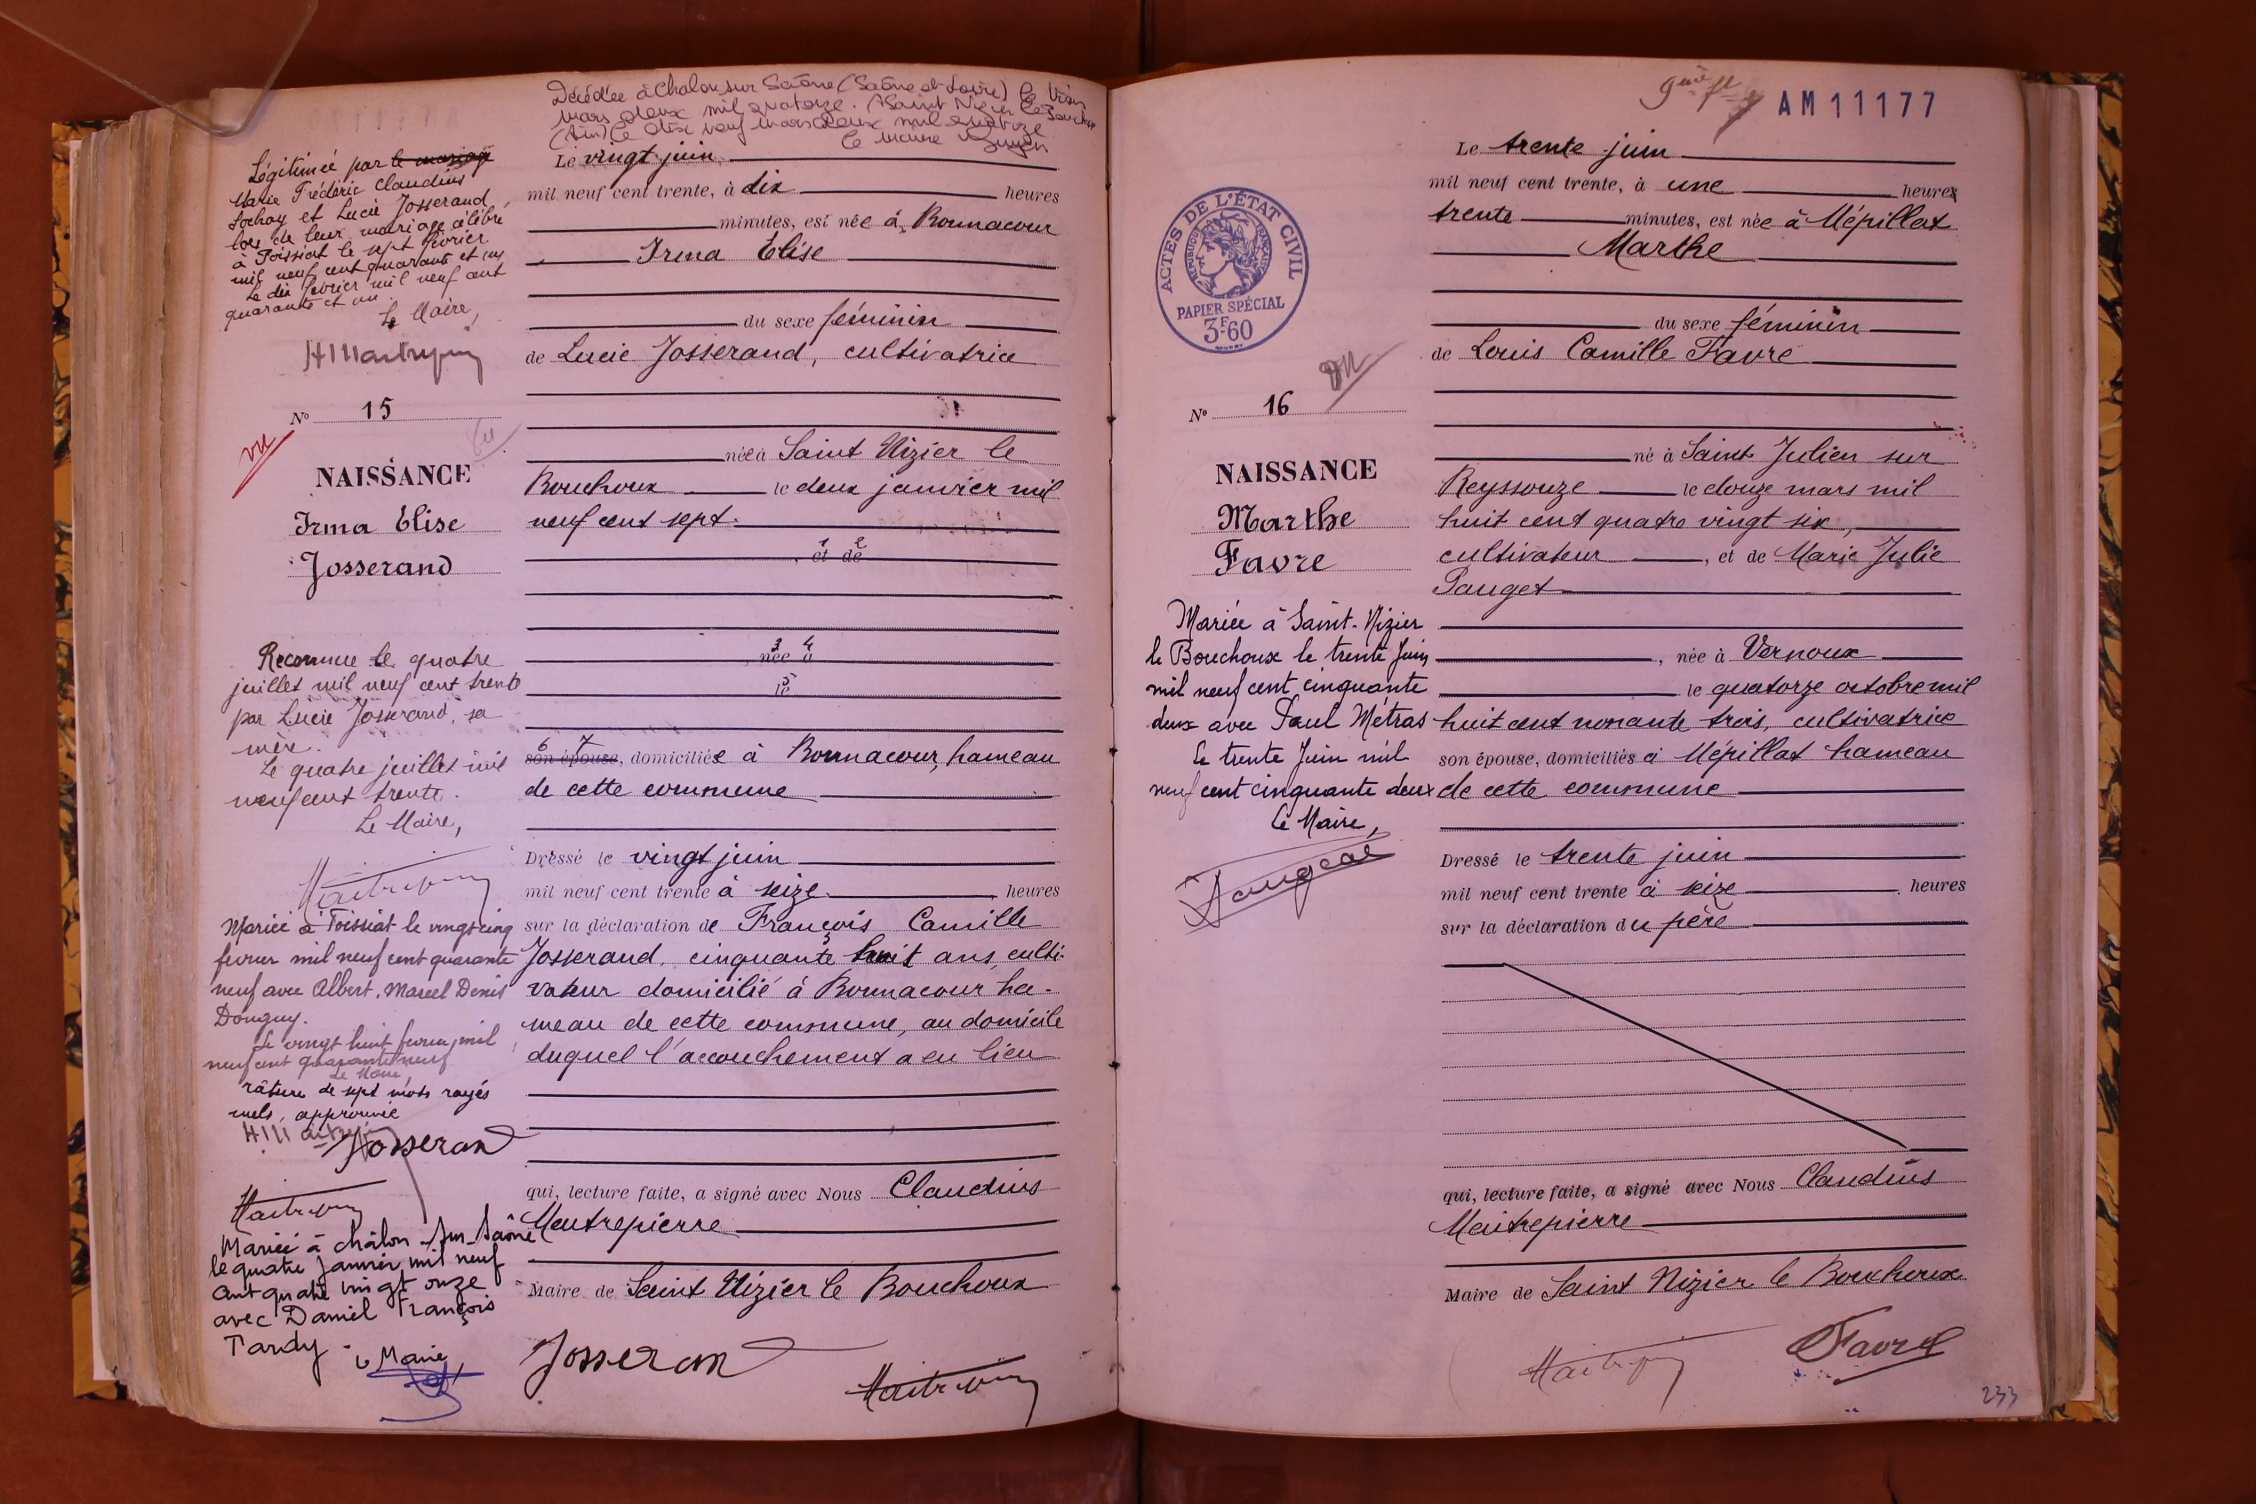 Décédée à Chalon sur Saône (Saône et Loire) le
mars deux mil quatorze. A Saint Nizier le Bouchoux
(Ain) le dix neuf mars deux mil quatorze
le maire
Légitimée par le mariage
Marie Frédéric Claudius
et Lucie Josserand,
lors de leur mariage célébré
à Foissiat le sept février
mil neuf cent quarante et un
Le dix février mil neuf cent
quarante et un.
Le Maire,
No 15
vu
NAISSANCE
Irma Elise
Josserand
Reconnue le quatre
juillet mil neuf cent trente
par Lucie Josserand, sa
mère.
Le quatre juillet mil
neuf cent trente.
Le Maire,
Mariée à Foissiat le vingt cinq
février mil neuf cent quarante
neuf avec Albert Marcel Denis
Donguy.
Le vingt huit février mil
neuf cent quarante neuf
Le Maire
râture de sept mots rayés
nuls, approuvée
Josseran
Mariée à Châlon-sur-Saône
le quatre Janvier mil neuf
cent quatre vingt onze
avec Daniel François
Tardy.
Le Maire,
Le vingt juin
mil neuf cent trente, à dix heures
minutes, est née à Bonnacour
Irma Elise
du sexe féminin
de Lucie Josserand, cultivatrice
née à Saint Nizier le
Bouchoux le deux janvier mil
neuf cent sept.
1 2
, et de
3 4
, née à
5
le
6 7
son épouse, domiciliée à Bonnacour, hameau
de cette commune
Dressé le vingt juin
mil neuf cent trente à seize heures
sur la déclaration de François Camille
Josserand, cinquante huit ans, culti-
vateur domicilié à Bonnacour ha-
meau de cette commune, au domicile
duquel l'accouchement a eu lieu
qui, lecture faite, a signé avec Nous Claudius
Maitrepierre
Maire de Saint Nizier le Bouchoux
Josseran
9me fle
AM11177
ACTES DE L'ÉTAT CIVIL
RÉPUBLIQUE FRANÇAISE
PAPIER SPÉCIAL
3F60
vu
No 16
NAISSANCE
Marthe
Favre
Mariée à Saint-Nizier
le Bouchoux le trente Juin
mil neuf cent cinquante
deux avec Paul Métras
Le trente Juin mil
neuf cent cinquante deux
Le Maire,
Le trente juin
mil neuf cent trente, à une heures
trente minutes, est née à Mépillat
Marthe
du sexe féminin
de Louis Camille Favre
né à Saint Julien sur
Reyssouze le douze mars mil
huit cent quatre vingt six,
cultivateur , et de Marie Julie
Pauget
, née à Vernoux
le quatorze octobre mil
huit cent nonante trois, cultivatrice
son épouse, domiciliés à Mépillat hameau
de cette commune
Dressé le trente juin
mil neuf cent trente à seize heures
sur la déclaration du père
qui, lecture faite, a signé avec Nous Claudius
Maitrepierre
Maire de Saint Nizier le Bouchoux
Favre
233